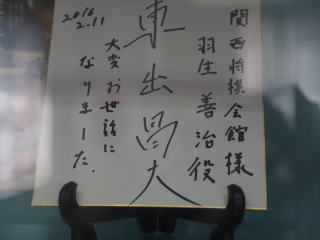 関西将棋会館様
羽生善治役
東出昌大
大変お世話に
なりました.
2016
2.11